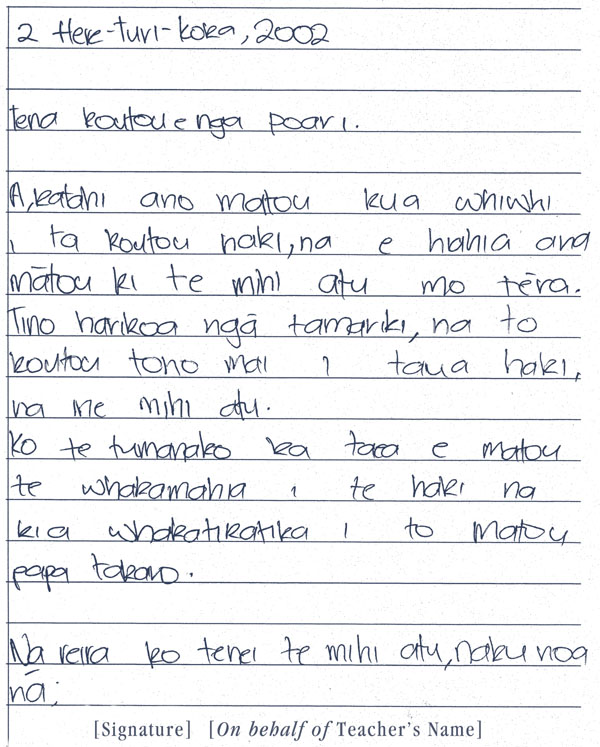 2 Here-turi-koka, 2002
tena koutou e nga poari.
A, katahi ano matou kua whiwhi
i ta koutou haki, na e hiahia ana
mātou ki te mihi atu mo tēra.
Tino harikoa ngā tamariki, na to
koutou tono mai i taua haki,
na me mihi atu.
Ko te tumanako ka taea e matou
te whakamahia i te haki na
kia whakatikatika i to matou
papa takaro.
Na reira ko tenei te mihi atu, naku noa
nā;
[Signature] [On behalf of Teacher's Name]